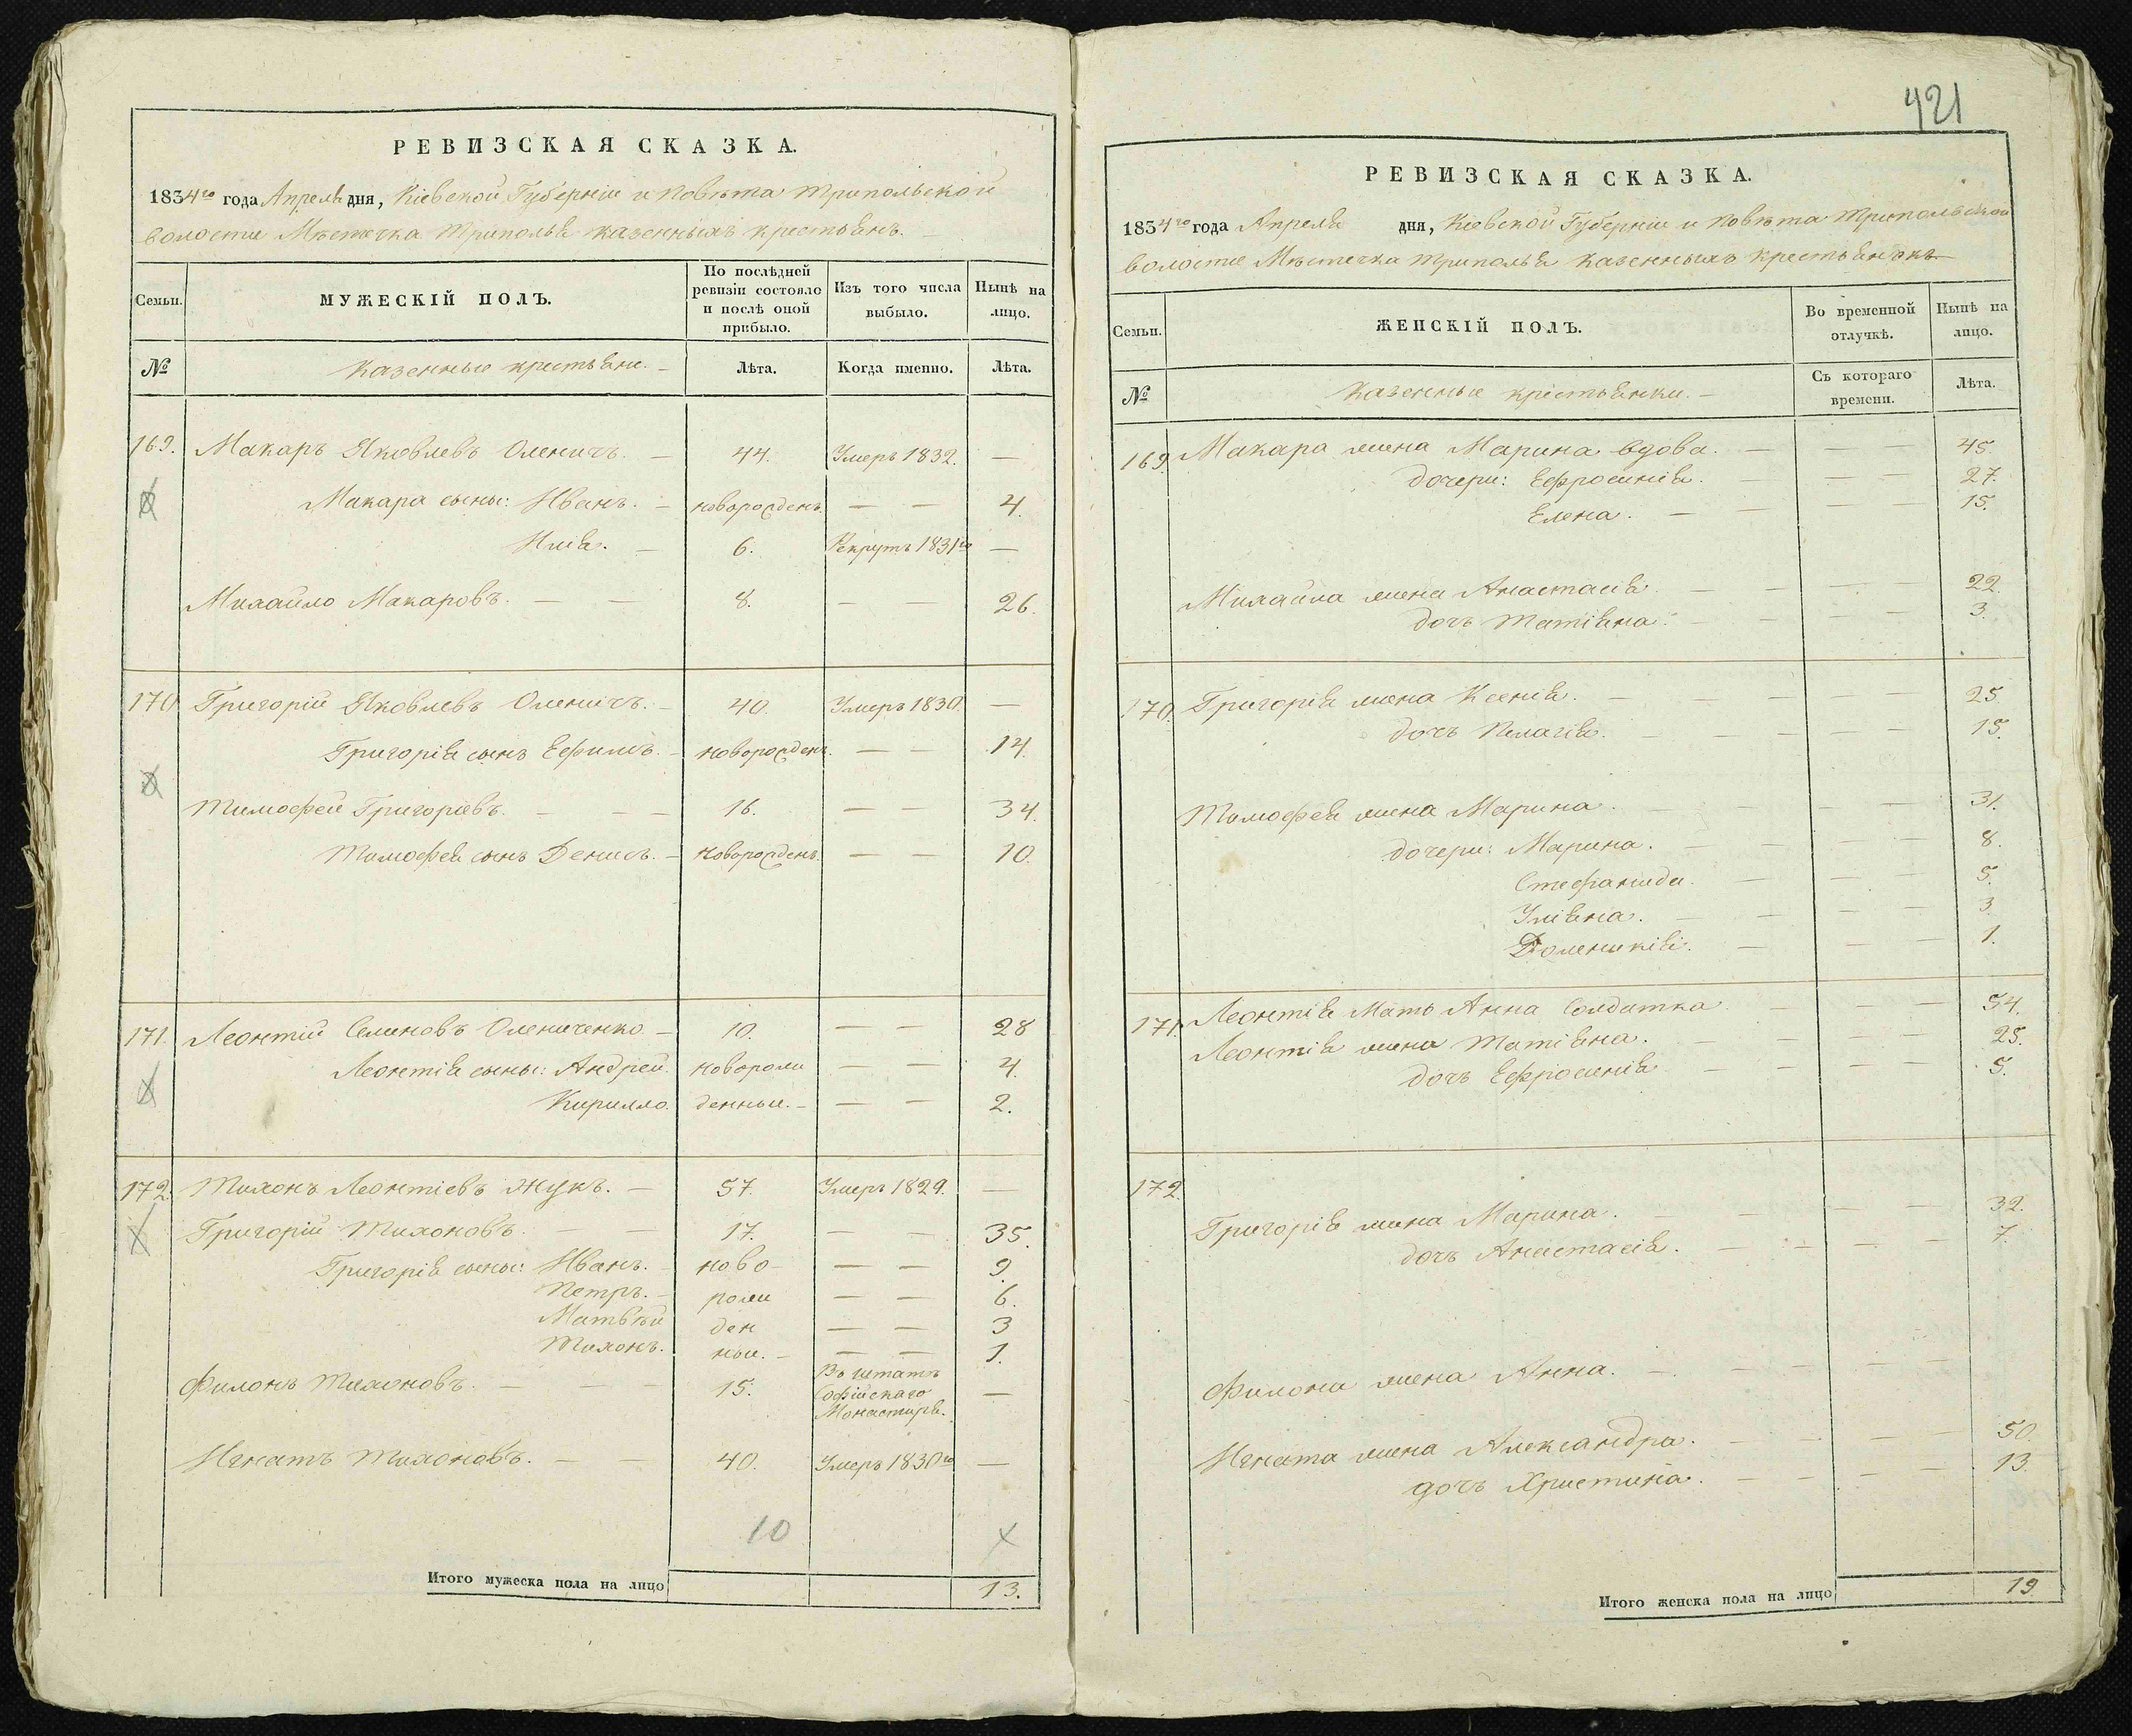 РЕВИЗСКАЯ СКАЗКА.
1834го года Апреля дня, Кіевской Губерніи и Повѣта Трипольской
волости Мѣстечка Триполья казенныхъ крестьянъ.
Семьи. МУЖЕСКІЙ ПОЛЪ. По послѣдней ревизіи состояло и послѣ оной прибыло. Изъ того числа выбыло. Нынѣ на лицо.
№ Казенные крестьяне. Лѣта. Когда именно. Лѣта.
169. Макаръ Яковлевъ Оленичъ. — 44. Умеръ 1832. —
Макара сыны: Иванъ. — новорожденъ. — — 4.
Илія. — 6. Рекрутъ 1831го —
Михайло Макаровъ. — — 8. — — 26.
170 Григорій Яковлевъ Оленичъ. — 40. Умеръ 1830. —
Григорія сынъ Ефимъ. — новорожденъ. — — 14.
Тимофей Григорьевъ. — — — 16. — — 34.
Тимофея сынъ Денисъ. — новорожденъ. — — 10.
171. Леонтій Семиновъ Олениченко — 10. — — 28
Леонтія сыны: Андрей. новорож — — 4.
Кирилло. денныи. — — — 2.
172. Тихонъ Леонтіевъ Жукъ. — 57. Умеръ 1829. —
Григорій Тихоновъ. — — 17. — — 35.
Григорія сыны: Иванъ. — ново- — — 9.
Петръ. — рож — — 6.
Матвѣй ден — — 3
Тихонъ. ныи. — — — 1.
Филонъ Тихоновъ. — — — 15. Въ штатъ Софійскаго Монастиря. —
Игнатъ Тихоновъ. — — 40. Умеръ 1830го —
10 X
Итого мужеска пола на лицо 13.
421
РЕВИЗСКАЯ СКАЗКА.
1834го года Апреля дня, Кіевской Губерніи и Повѣта Трипольской
волости Мѣстечка Триполья казенныхъ крестьянокъ
Семьи. ЖЕНСКІЙ ПОЛЪ. Во временной отлучкѣ. Нынѣ на лицо.
№ Казенные крестьянки. — Съ котораго времени. Лѣта.
169. Макара жена Марина вдова. — — — 45.
дочери: Ефросинія. — — — 27.
Елена. — — — — 15.
Михайла жена Анастасія. — — — — 22.
дочь Татіяна. — — — — 3.
170. Григорія жена Ксенія. — — — — — 25.
дочь Пелагія. — — — — — 15.
Тимофея жена Марина. — — — — — 31.
дочери: Марина. — — — — 8.
Стефанида. — — — 5.
Уліяна. — — — — 3.
Доменикія. — — — 1.
171. Леонтія Мать Анна Солдатка — — — 54.
Леонтія жена Татіяна. — — — — 25.
дочь Ефросинія — — — — 5.
172.
Григорія жена Марина. — — — — — 32.
дочь Анастасія. — — — — 7.
Филона жена Анна. — — — — —
Игната жена Александра. — — — — 50.
дочь Христина. — — — — 13.
Итого женска пола на лицо 19.